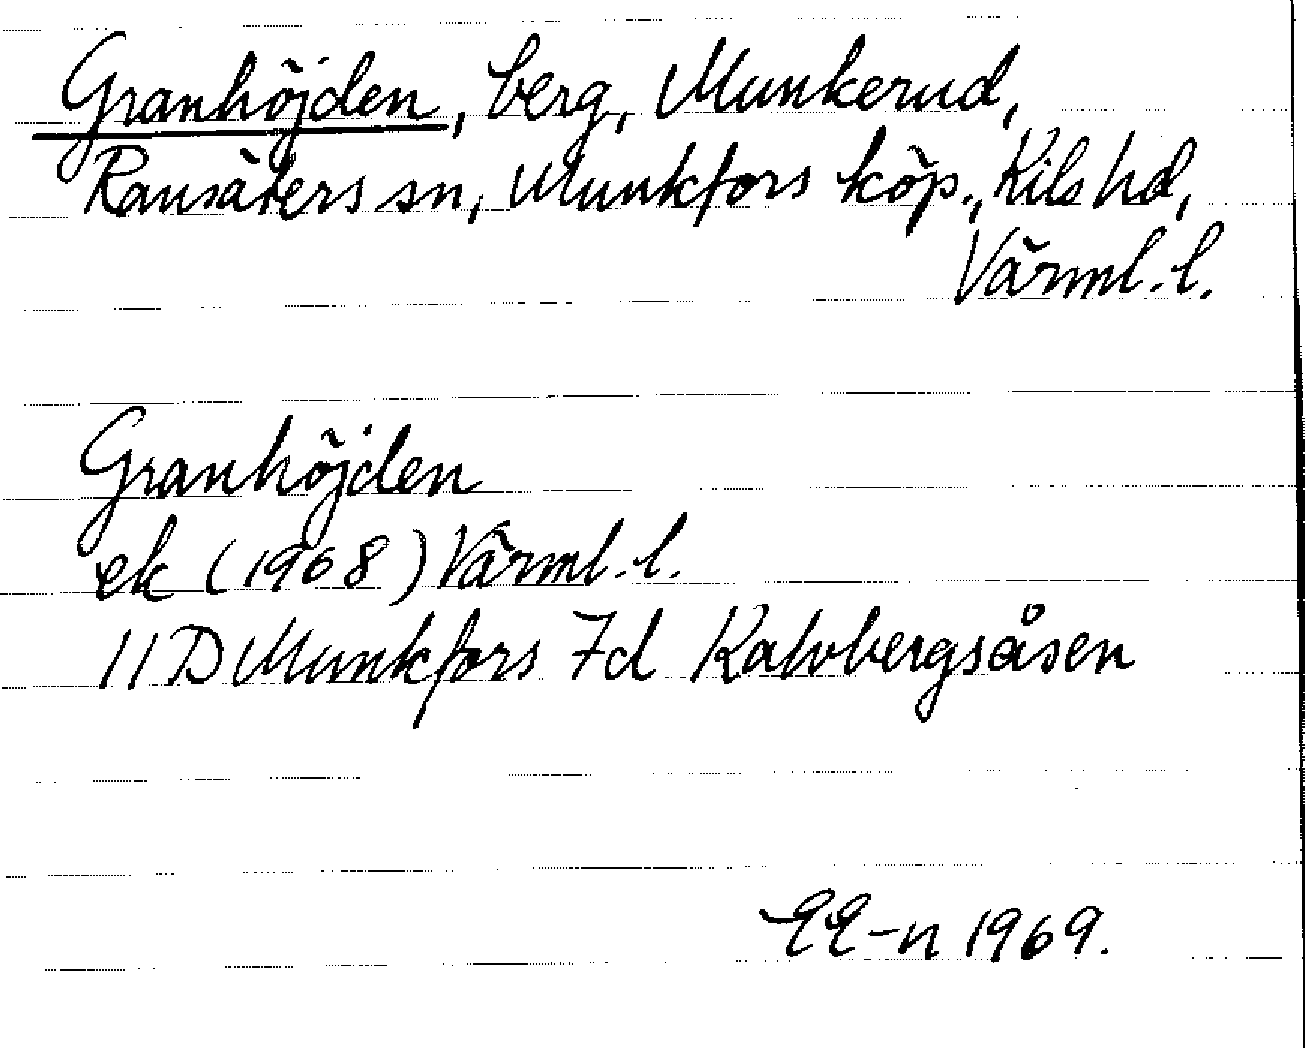 Granhöjden, berg, Munkerud,
Ransäters sn, Munkfors köp., Kils hd,
Värml. l.
Granhöjden
ek (1968) Värml. l.
11 D Munkfors 7d Kalvbergsåsen
EE-n 1969.